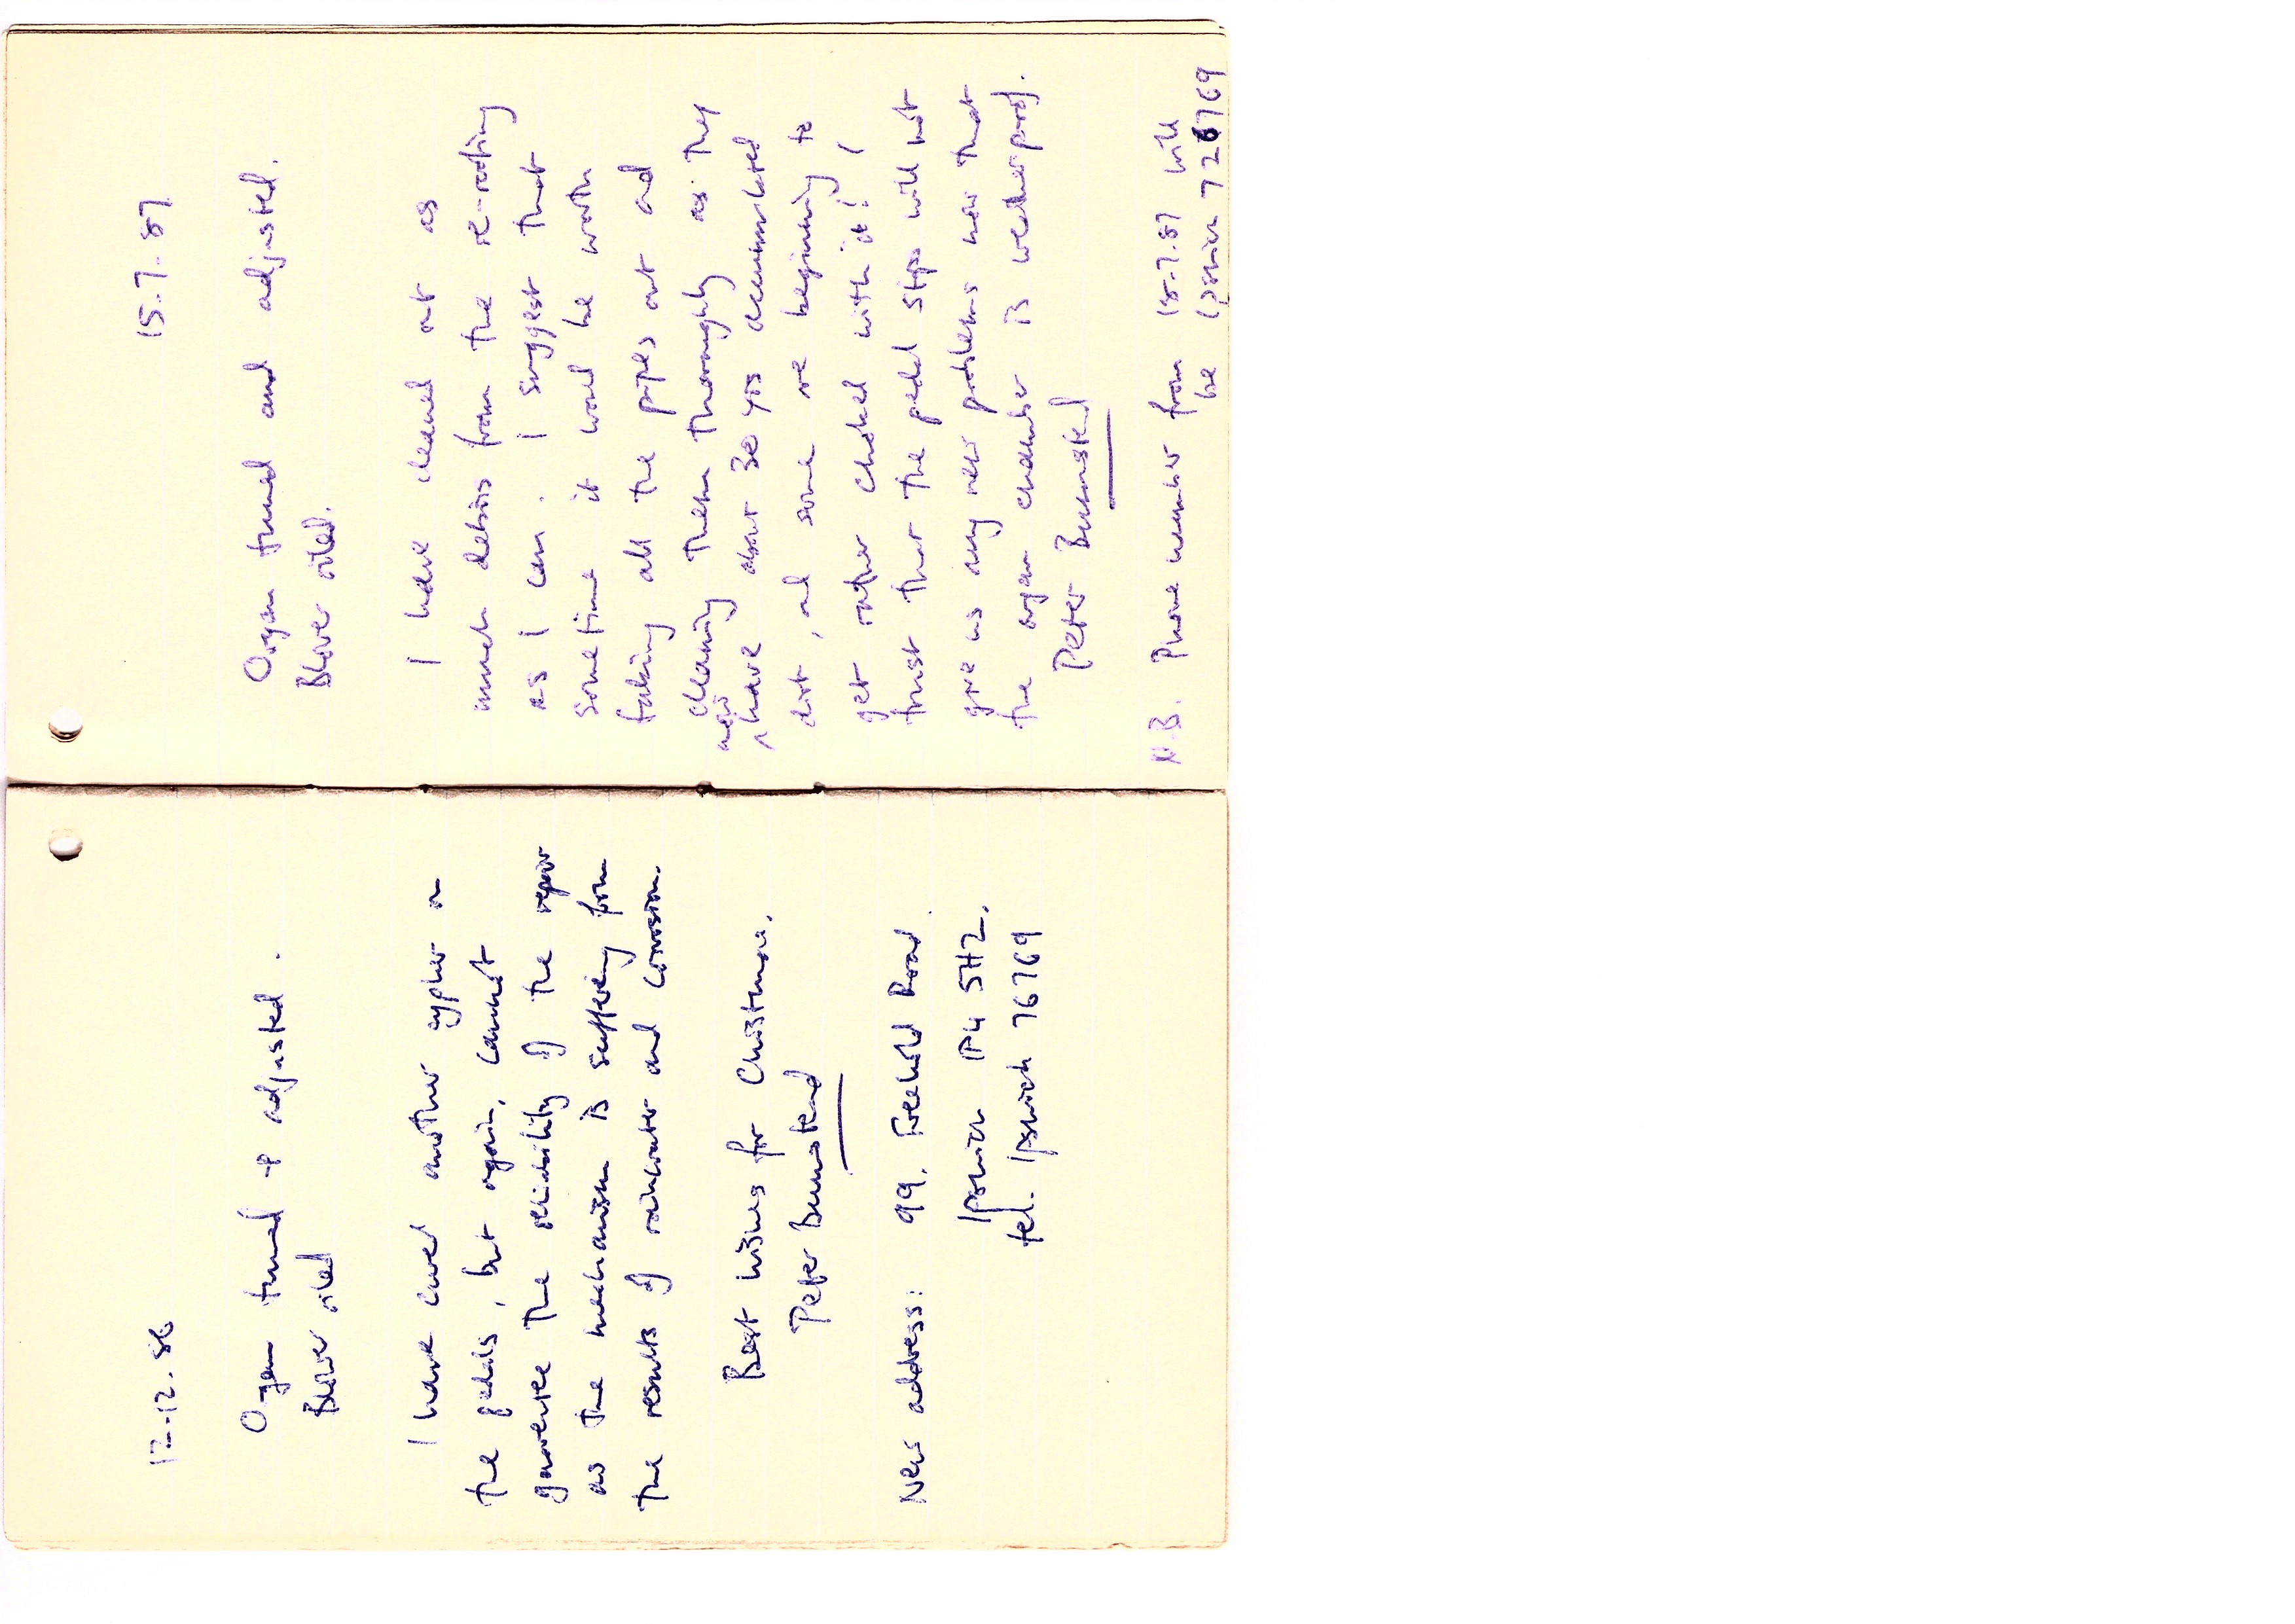 12-12.86
Organ tuned + adjusted.
Blower oiled
I have cured another cypher on
the pedals, but again, cannot
guarantee the reliability of the repair
as the mechanism is suffering from
the results of rainwater and corrosion.
Best wishes for Christmas,
Peter Bumstead
New address: 99. Freehold Road.
Ipswich IP4 5HZ.
tel. Ipswich 76769
15.7.87
Organ tuned and adjusted.
Blower oiled.
I have cleaned out as
much debris from the re-roofing
as I can. I suggest that
sometime it would be worth
taking all the pipes out and
cleaning them thoroughly as they
now
^ have about 30 yrs accumulated
dirt, and some are beginning to
get rather choked with it! I
trust that the pedal stops will not
give us any new problems now that
the organ chamber is weatherproof.
Peter Bumstead
N.B. Phone number from 18.7.87 will
be Ipswich 726769